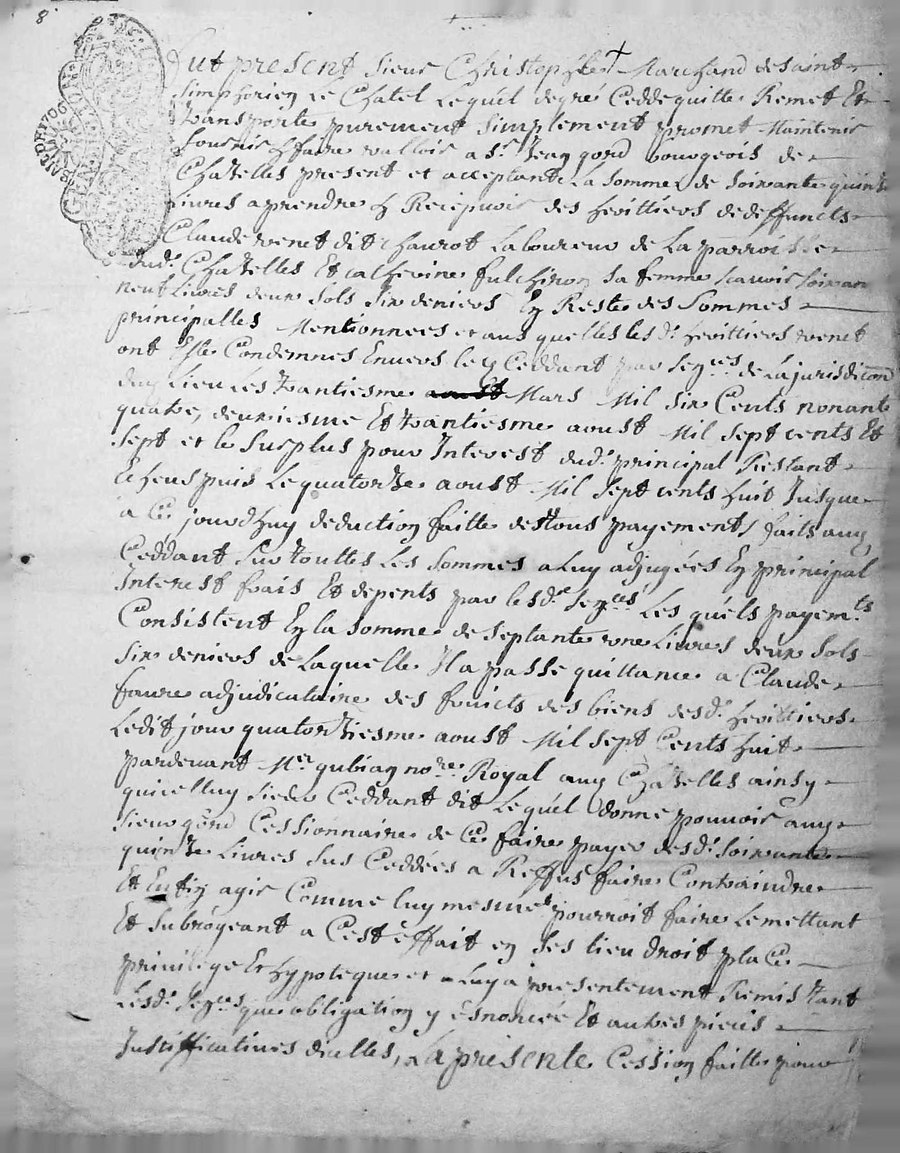 8
GNALDE LION 1700
fut present Sieur Christophle Marchand de saint
Simphorien Le Chatel Lequel degré Cedde quitte Remet Et
transporte purement Simplement promet Maintenir
fournir & faire valloir a sr Jean gord bourgeois de
Chazelles present et acceptant La somme de soixante quinze
Livres a prendre & Recepuoir des heritiers de deffuncts
Claude venet dit chaurot Laboureur de La parroisse
dud. Chazelles Et catherine fulchiron sa femme scauoir soixan
neuf Livres deux sols six deniers En Reste des Sommes
principalles Mentionnees et aus quelles lesd. heritiers venet
ont Este Condemnes Enuers le y Ceddant par sences de La jurisdicon
duy Lieu Les trantiesme aoust Mars Mil six Cents nonante
quatre, deuxiesme Et trantiesme aoust Mil sept cents Et
Sept et le Surplus pour Interest dud. principal Restant
Echeus puis Lequatorze aoust Mil sept cents huit Jusque
a Ce jourd'huy deduction faitte desttous payements faits auy
Ceddant sur touttes Les sommes a Luy adjugées En principal
Interest frais Et depents par lesd. sences Les quels payemts
Consistent En la somme de septante une Livres deux sols
six deniers de Laquelle Il a passé quittance a Claude
faure adjudicataire des fruicts des biens desd. heritiers
Ledit jour quatorziesme aoust Mil sept Cents huit
pardeuant Mer gubian nore Royal auy Chazelles ainsy
quicelluy sieur Ceddant dit Lequel donne pouvoir auy
sieur gord Cessionnaire de Ce faire payer desd. soixante
quinze Livres sus Ceddées a Reffus faire Contraindre
Et Enfin agir Comme luy mesme pourroit faire Lemettant
Et subrogeant a Cest effait en ses lieu droit place
privilege Et hypoteque et a Luy a presentement Remis tant
Lesd. sences que obligation y esnoncée Et autres pieces
Justifficatives dicelles, La presente Cession faitte pour